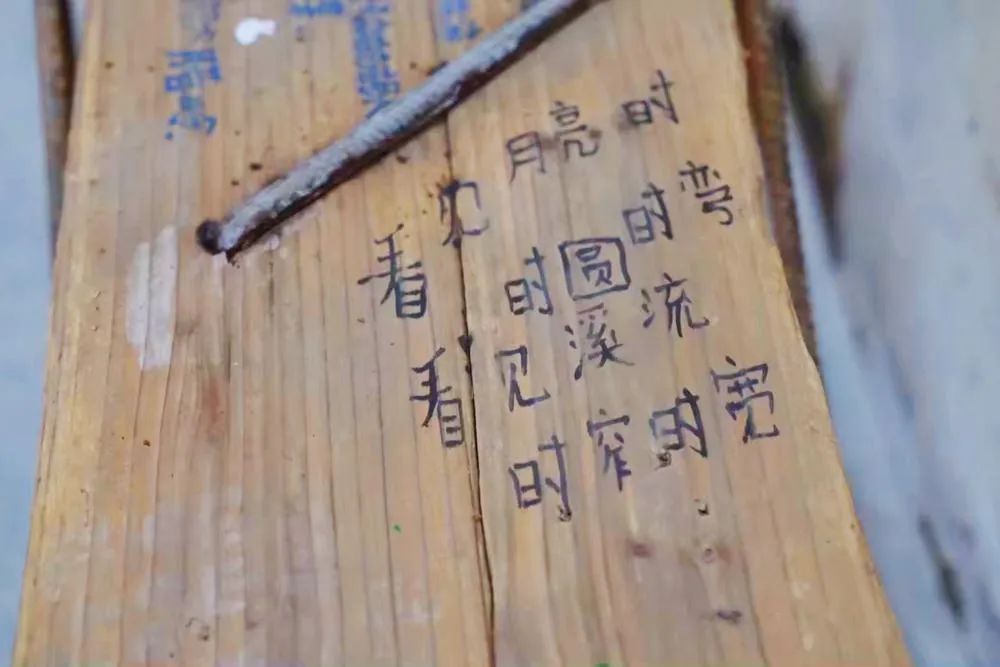 看见月亮时
时圆时弯
看见溪流
时窄时宽